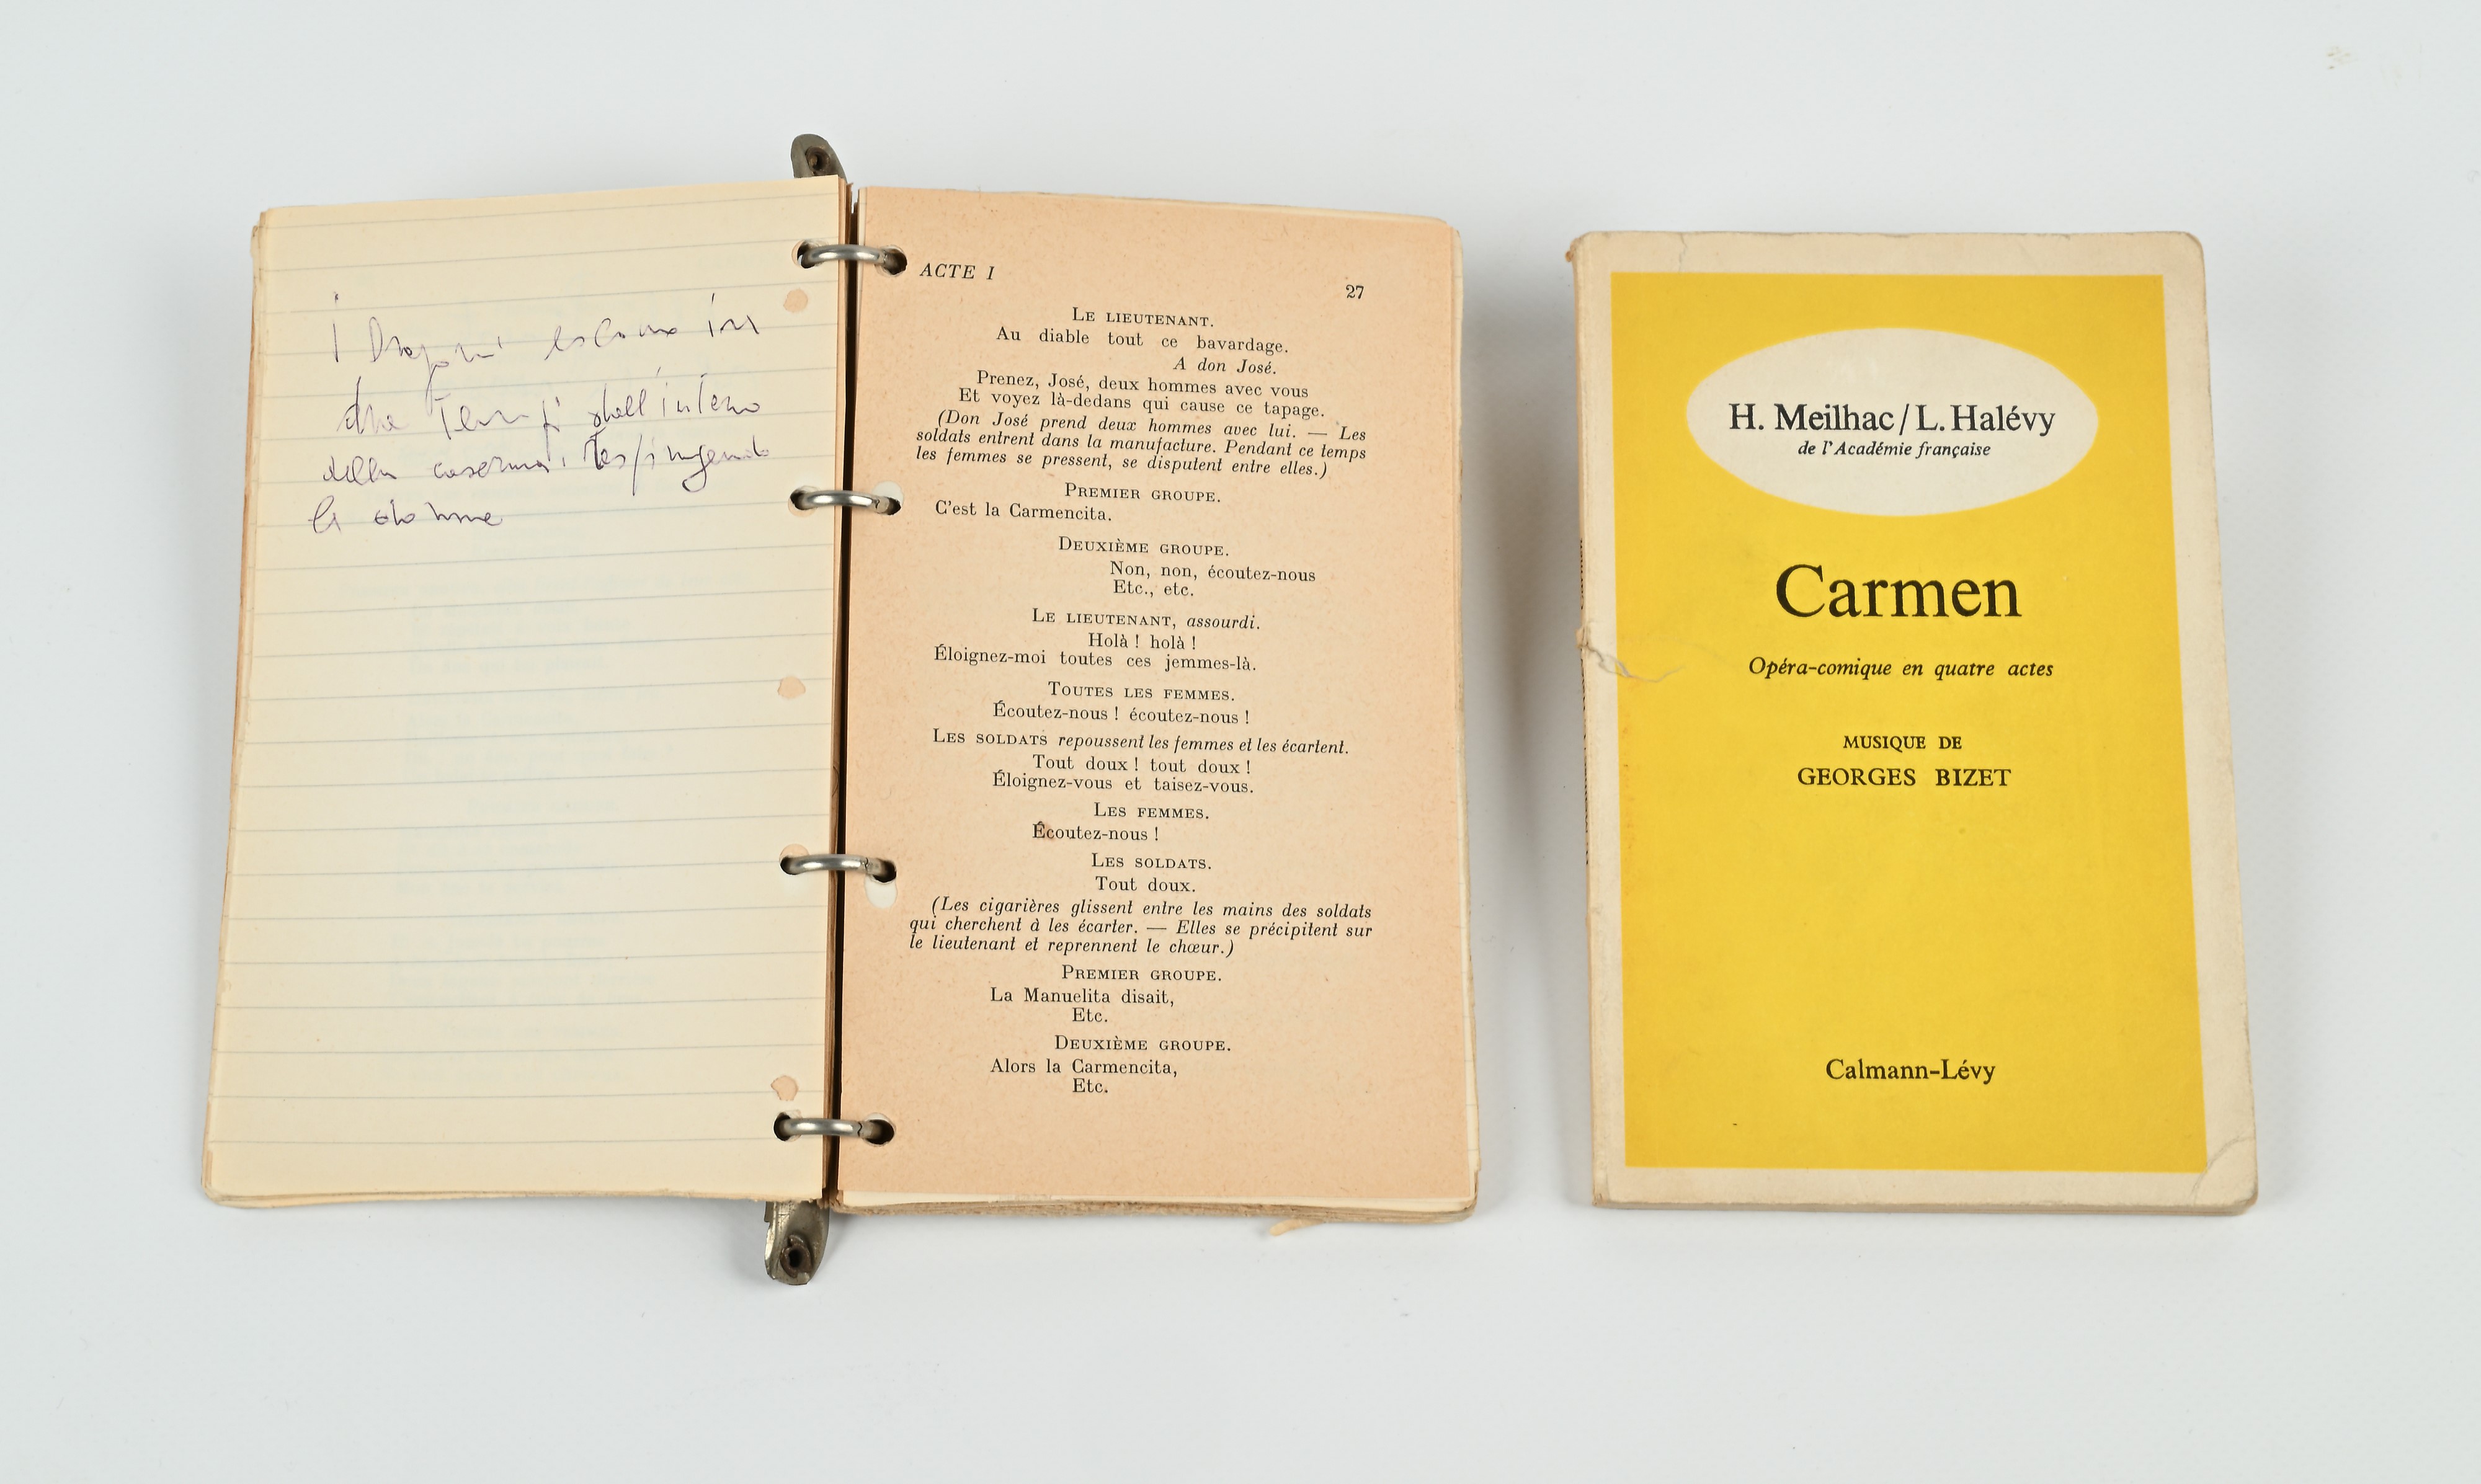 I Dragoni escono in
due Tempi dall'interno
della caserma, respingendo
le donne
ACTE I
27
LE LIEUTENANT.
Au diable tout ce bavardage.
A don José.
Prenez, José, deux hommes avec vous
Et voyez là-dedans qui cause ce tapage.
(Don José prend deux hommes avec lui. — Les
soldats entrent dans la manufacture. Pendant ce temps
les femmes se pressent, se disputent entre elles.)
PREMIER GROUPE.
C'est la Carmencita.
DEUXIÈME GROUPE.
Non, non, écoutez-nous
Etc., etc.
LE LIEUTENANT, assourdi.
Holà ! holà !
Éloignez-moi toutes ces jemmes-là.
TOUTES LES FEMMES.
Écoutez-nous ! écoutez-nous !
LES SOLDATS repoussent les femmes et les écartent.
Tout doux ! tout doux !
Éloignez-vous et taisez-vous.
LES FEMMES.
Écoutez-nous !
LES SOLDATS.
Tout doux.
(Les cigarières glissent entre les mains des soldats
qui cherchent à les écarter. — Elles se précipitent sur
le lieutenant et reprennent le chœur.)
PREMIER GROUPE.
La Manuelita disait,
Etc.
DEUXIÈME GROUPE.
Alors la Carmencita,
Etc.
H. Meilhac / L. Halévy
de l'Académie française
Carmen
Opéra-comique en quatre actes
MUSIQUE DE
GEORGES BIZET
Calmann-Lévy